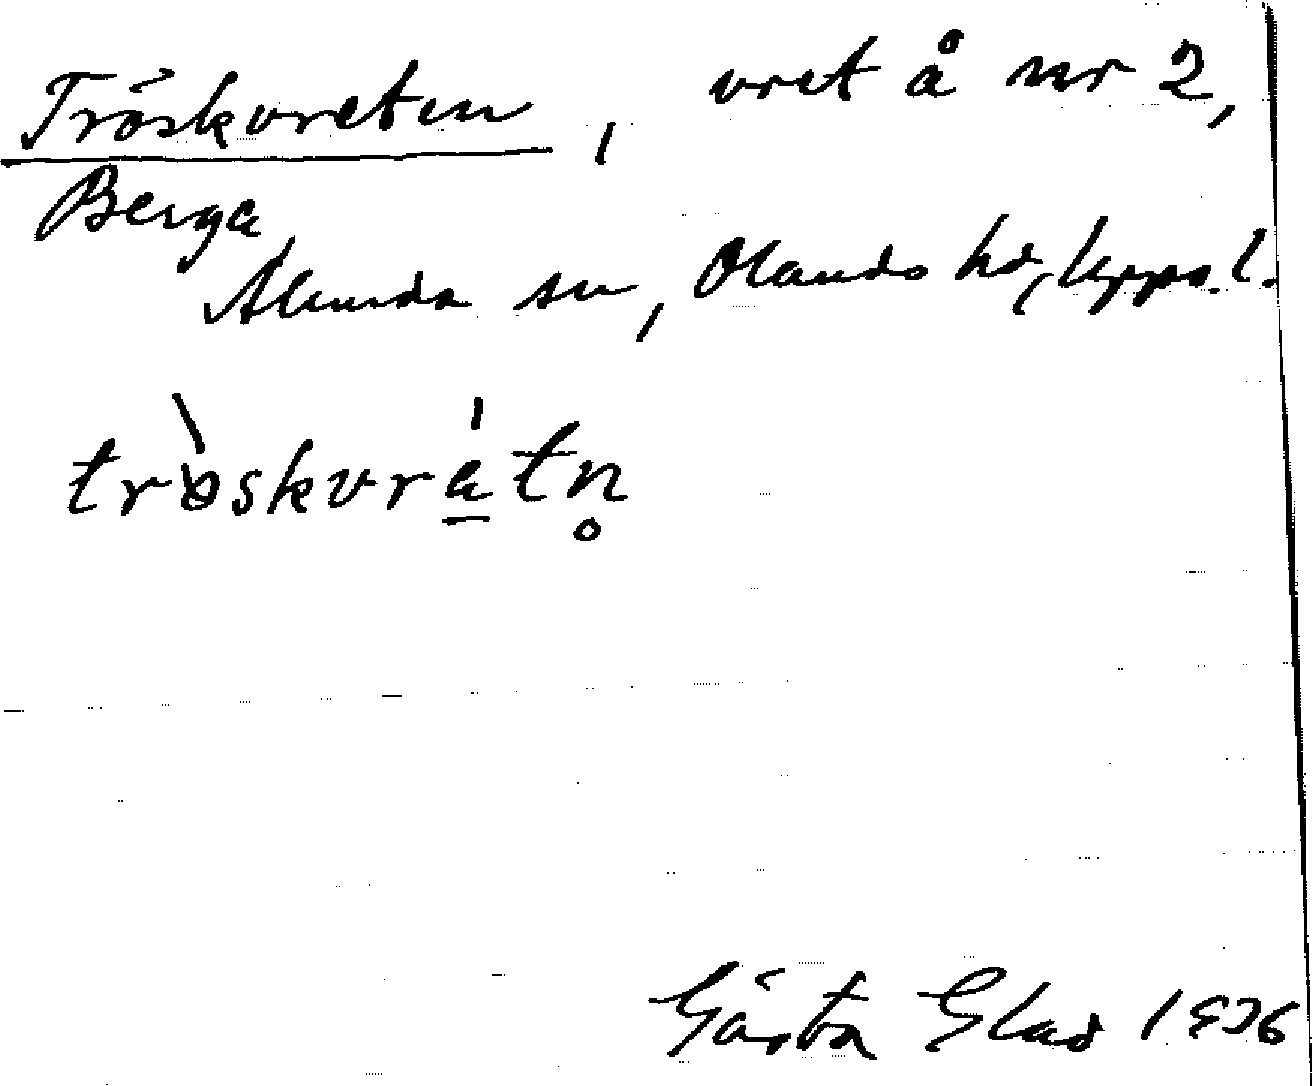 Tröskvreten, vret å nr 2,
Berga
Alunda sn, Olands hd, Upps. l.
tròskvrátn̥
Gösta Glad 1936